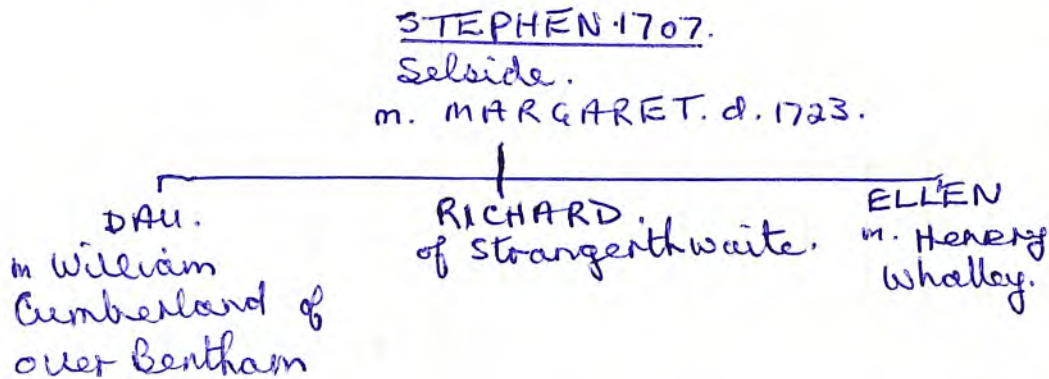 STEPHEN. 1707.
Selside.
m. MARGARET. d. 1723.
DAU.
m William
Cumberland of
over Bentham
RICHARD.
of Strangerthwaite.
ELLEN
m. Henery
Whalley.